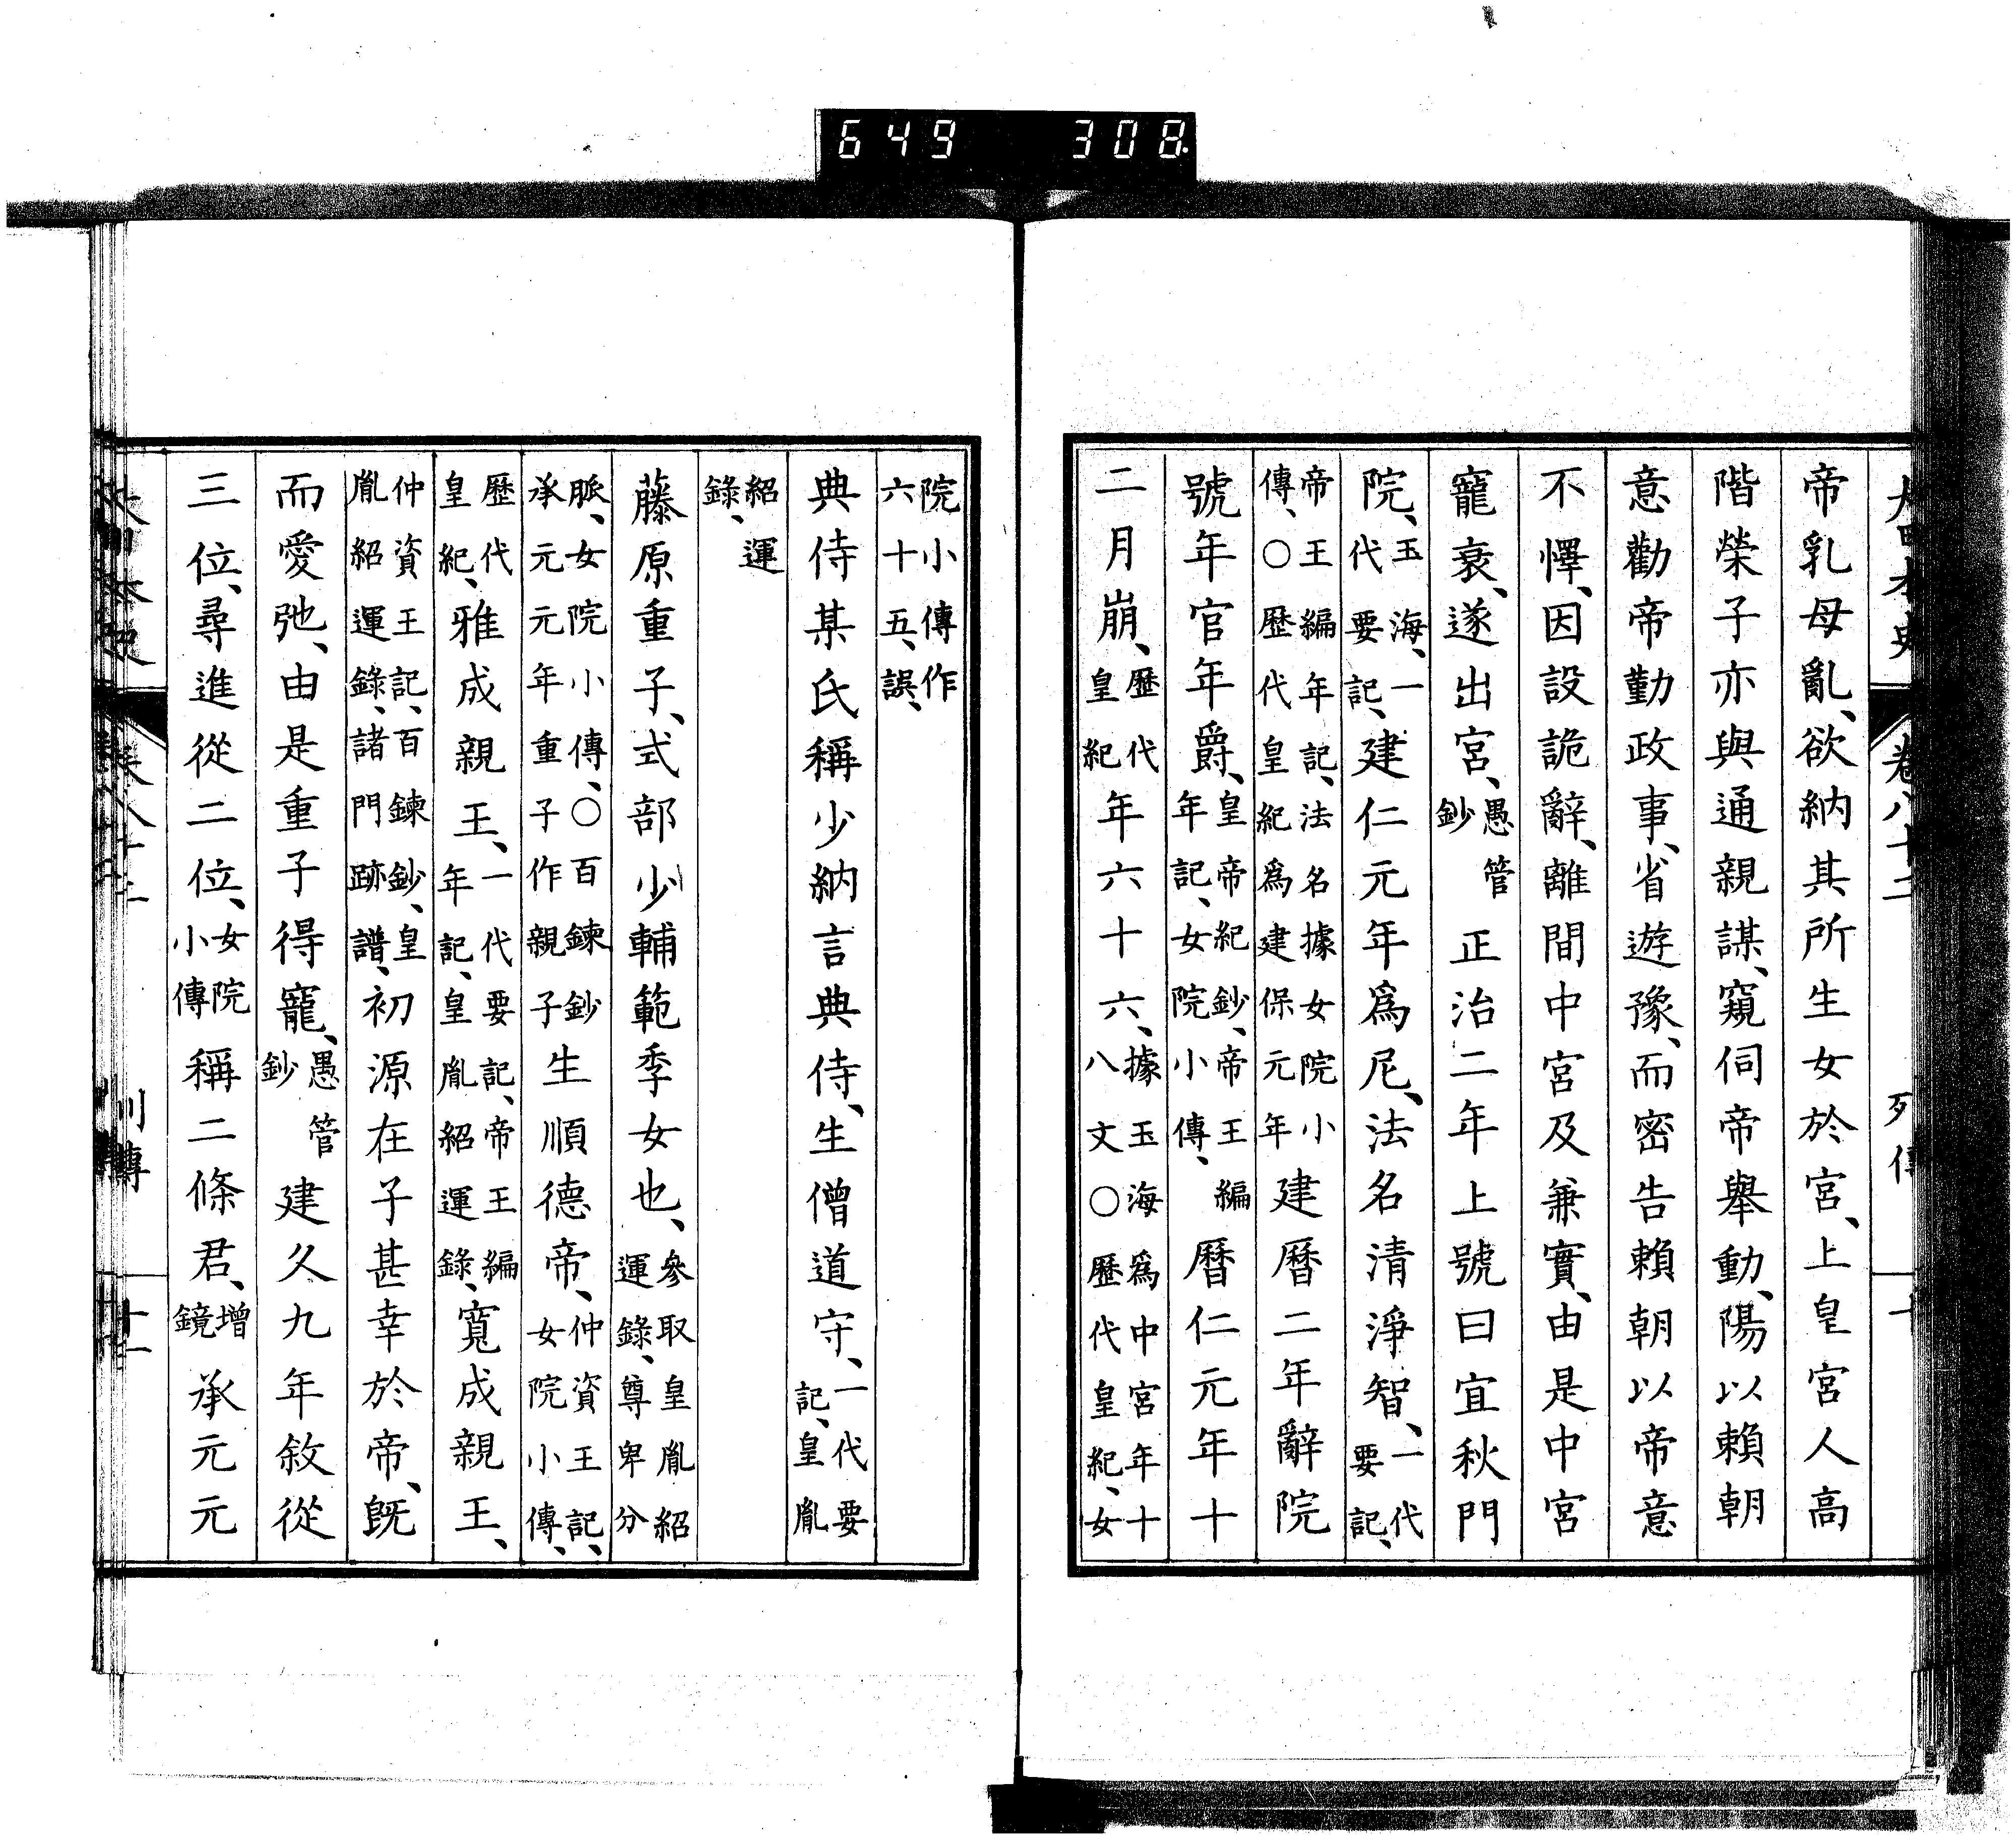 649 308
大日本史 卷八十二 列傳 十
帝乳母亂、欲納其所生女於宮、上皇宮人高
階榮子亦與通親謀、窺伺帝舉動、陽以賴朝
意勸帝勤政事、省遊豫、而密告賴朝以帝意
不懌、因設詭辭、離間中宮及兼實、由是中宮
寵衰、遂出宮、愚管鈔正治二年上號曰宜秋門
院、玉海、一代要記、建仁元年爲尼、法名清淨智、一代要記、
帝王編年記、法名據女院小傳、○歷代皇紀爲建保元年建曆二年辭院
號年官年爵、皇帝紀鈔、帝王編年記、女院小傳、曆仁元年十
二月崩、歷代皇紀年六十六、據玉海爲中宮年十八文○歷代皇紀、女
院小傳作六十五、誤、
典侍某氏稱少納言典侍、生僧道守、一代要記、皇胤
紹運錄、
藤原重子、式部少輔範季女也、參取皇胤紹運錄、尊卑分
脈、女院小傳、○百鍊鈔承元元年重子作親子生順德帝、仲資王記、女院小傳、
歷代皇紀、雅成親王、一代要記、帝王編年記、皇胤紹運錄、寬成親王、
仲資王記、百鍊鈔、皇胤紹運錄、諸門跡譜、初源在子甚幸於帝、旣
而愛弛、由是重子得寵、愚管鈔建久九年敘從
三位、尋進從二位、女院小傳稱二條君、增鏡承元元